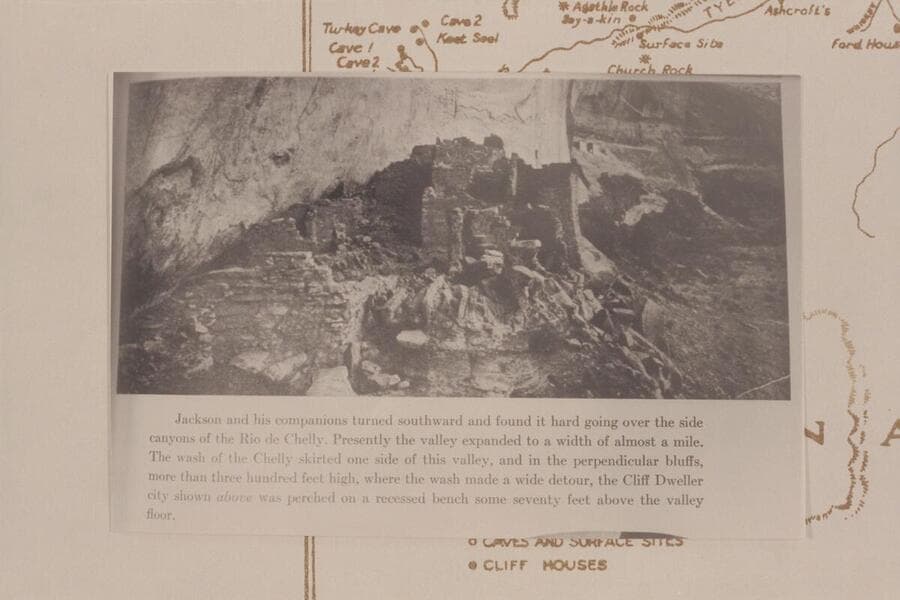 Turkey Cave
Cave 2
Keet Seel
Cave 1
Cave 2
Agathla Rock
Say-a-kin
TYE
Ashcroft's
Surface Site
Church Rock
Ford Hous
Jackson and his companions turned southward and found it hard going over the side
canyons of the Rio de Chelly. Presently the valley expanded to a width of almost a mile.
The wash of the Chelly skirted one side of this valley, and in the perpendicular bluffs,
more than three hundred feet high, where the wash made a wide detour, the Cliff Dweller
city shown above was perched on a recessed bench some seventy feet above the valley
floor.
CAVES AND SURFACE SITES
CLIFF HOUSES